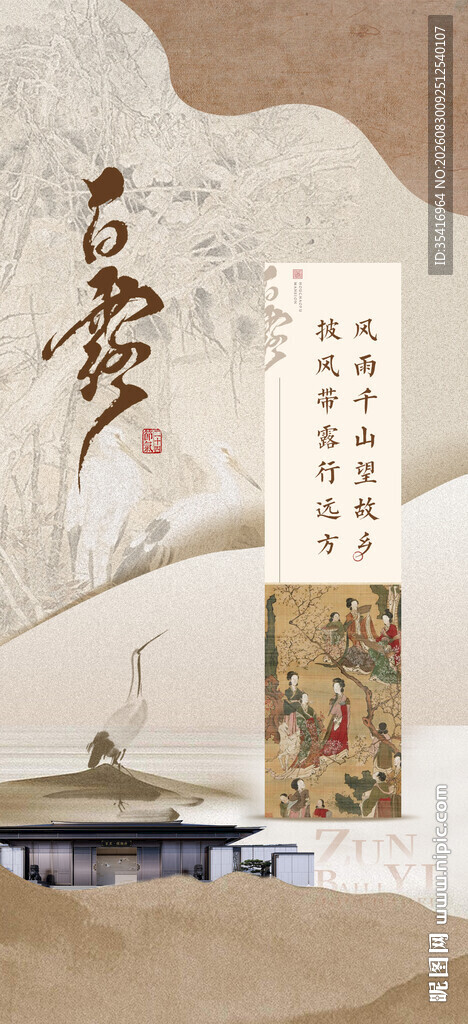 白露
二十四
节氣
白露
风雨千山望故乡
披风带露行远方
ZUN
YI
BAILU
ID:35416964 NO:20260830092512540107
昵图网 www.nipic.com